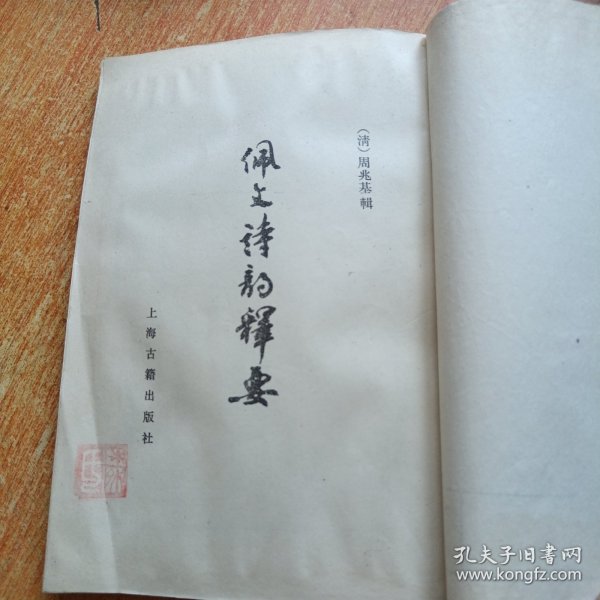 （清）周兆基輯
佩文詩韵釋要
上海古籍出版社
孔夫子旧书网
www.kongfz.com